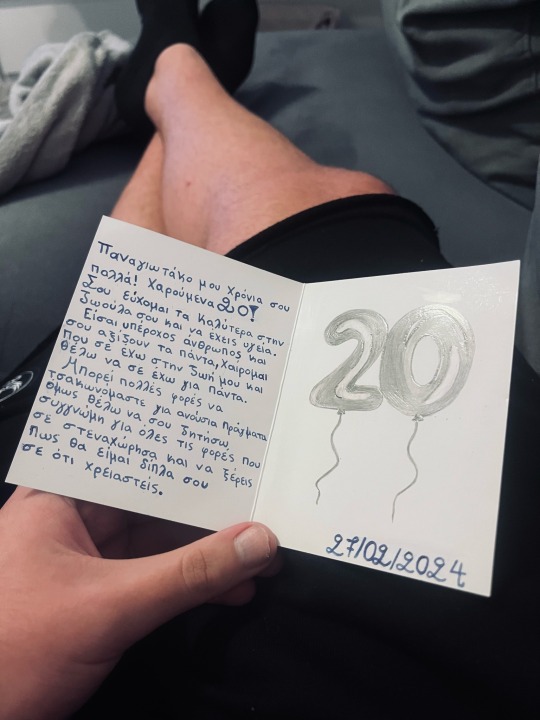 Παναγιωτάκο μου χρόνια σου
πολλά! Χαρούμενα 20!
Σου εύχομαι τα καλύτερα στην
ζωούλα σου και να έχεις υγεία.
Είσαι υπέροχος άνθρωπος και
σου αξίζουν τα πάντα, Χαίρομαι
που σε έχω στην ζωή μου και
θέλω να σε έχω για πάντα.
Μπορεί πολλές φορές να
τσακωνόμαστε για ανούσια πράγματα
όμως θέλω να σου ζητήσω
συγγνώμη για όλες τις φορές που
σε στεναχώρησα και να ξέρεις
πως θα είμαι δίπλα σου
σε ότι χρειαστείς.
20
27/02/2024